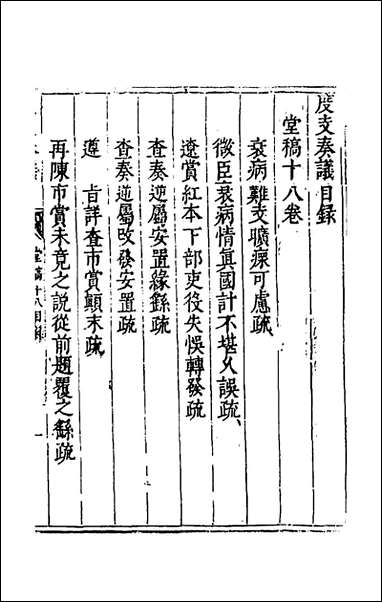 度支奏議目録
堂稿十八卷
衰病難支曠瘝可慮疏
微臣衰病情眞國計不堪乆誤疏
遼賞紅本下部吏役失悞轉發疏
查奏逆屬安置緣繇疏
查奏逆屬改發安置疏
遵 㫖詳查市賞顛末疏
再陳市賞未竟之說從前題覆之繇疏
堂稿十八目録
一